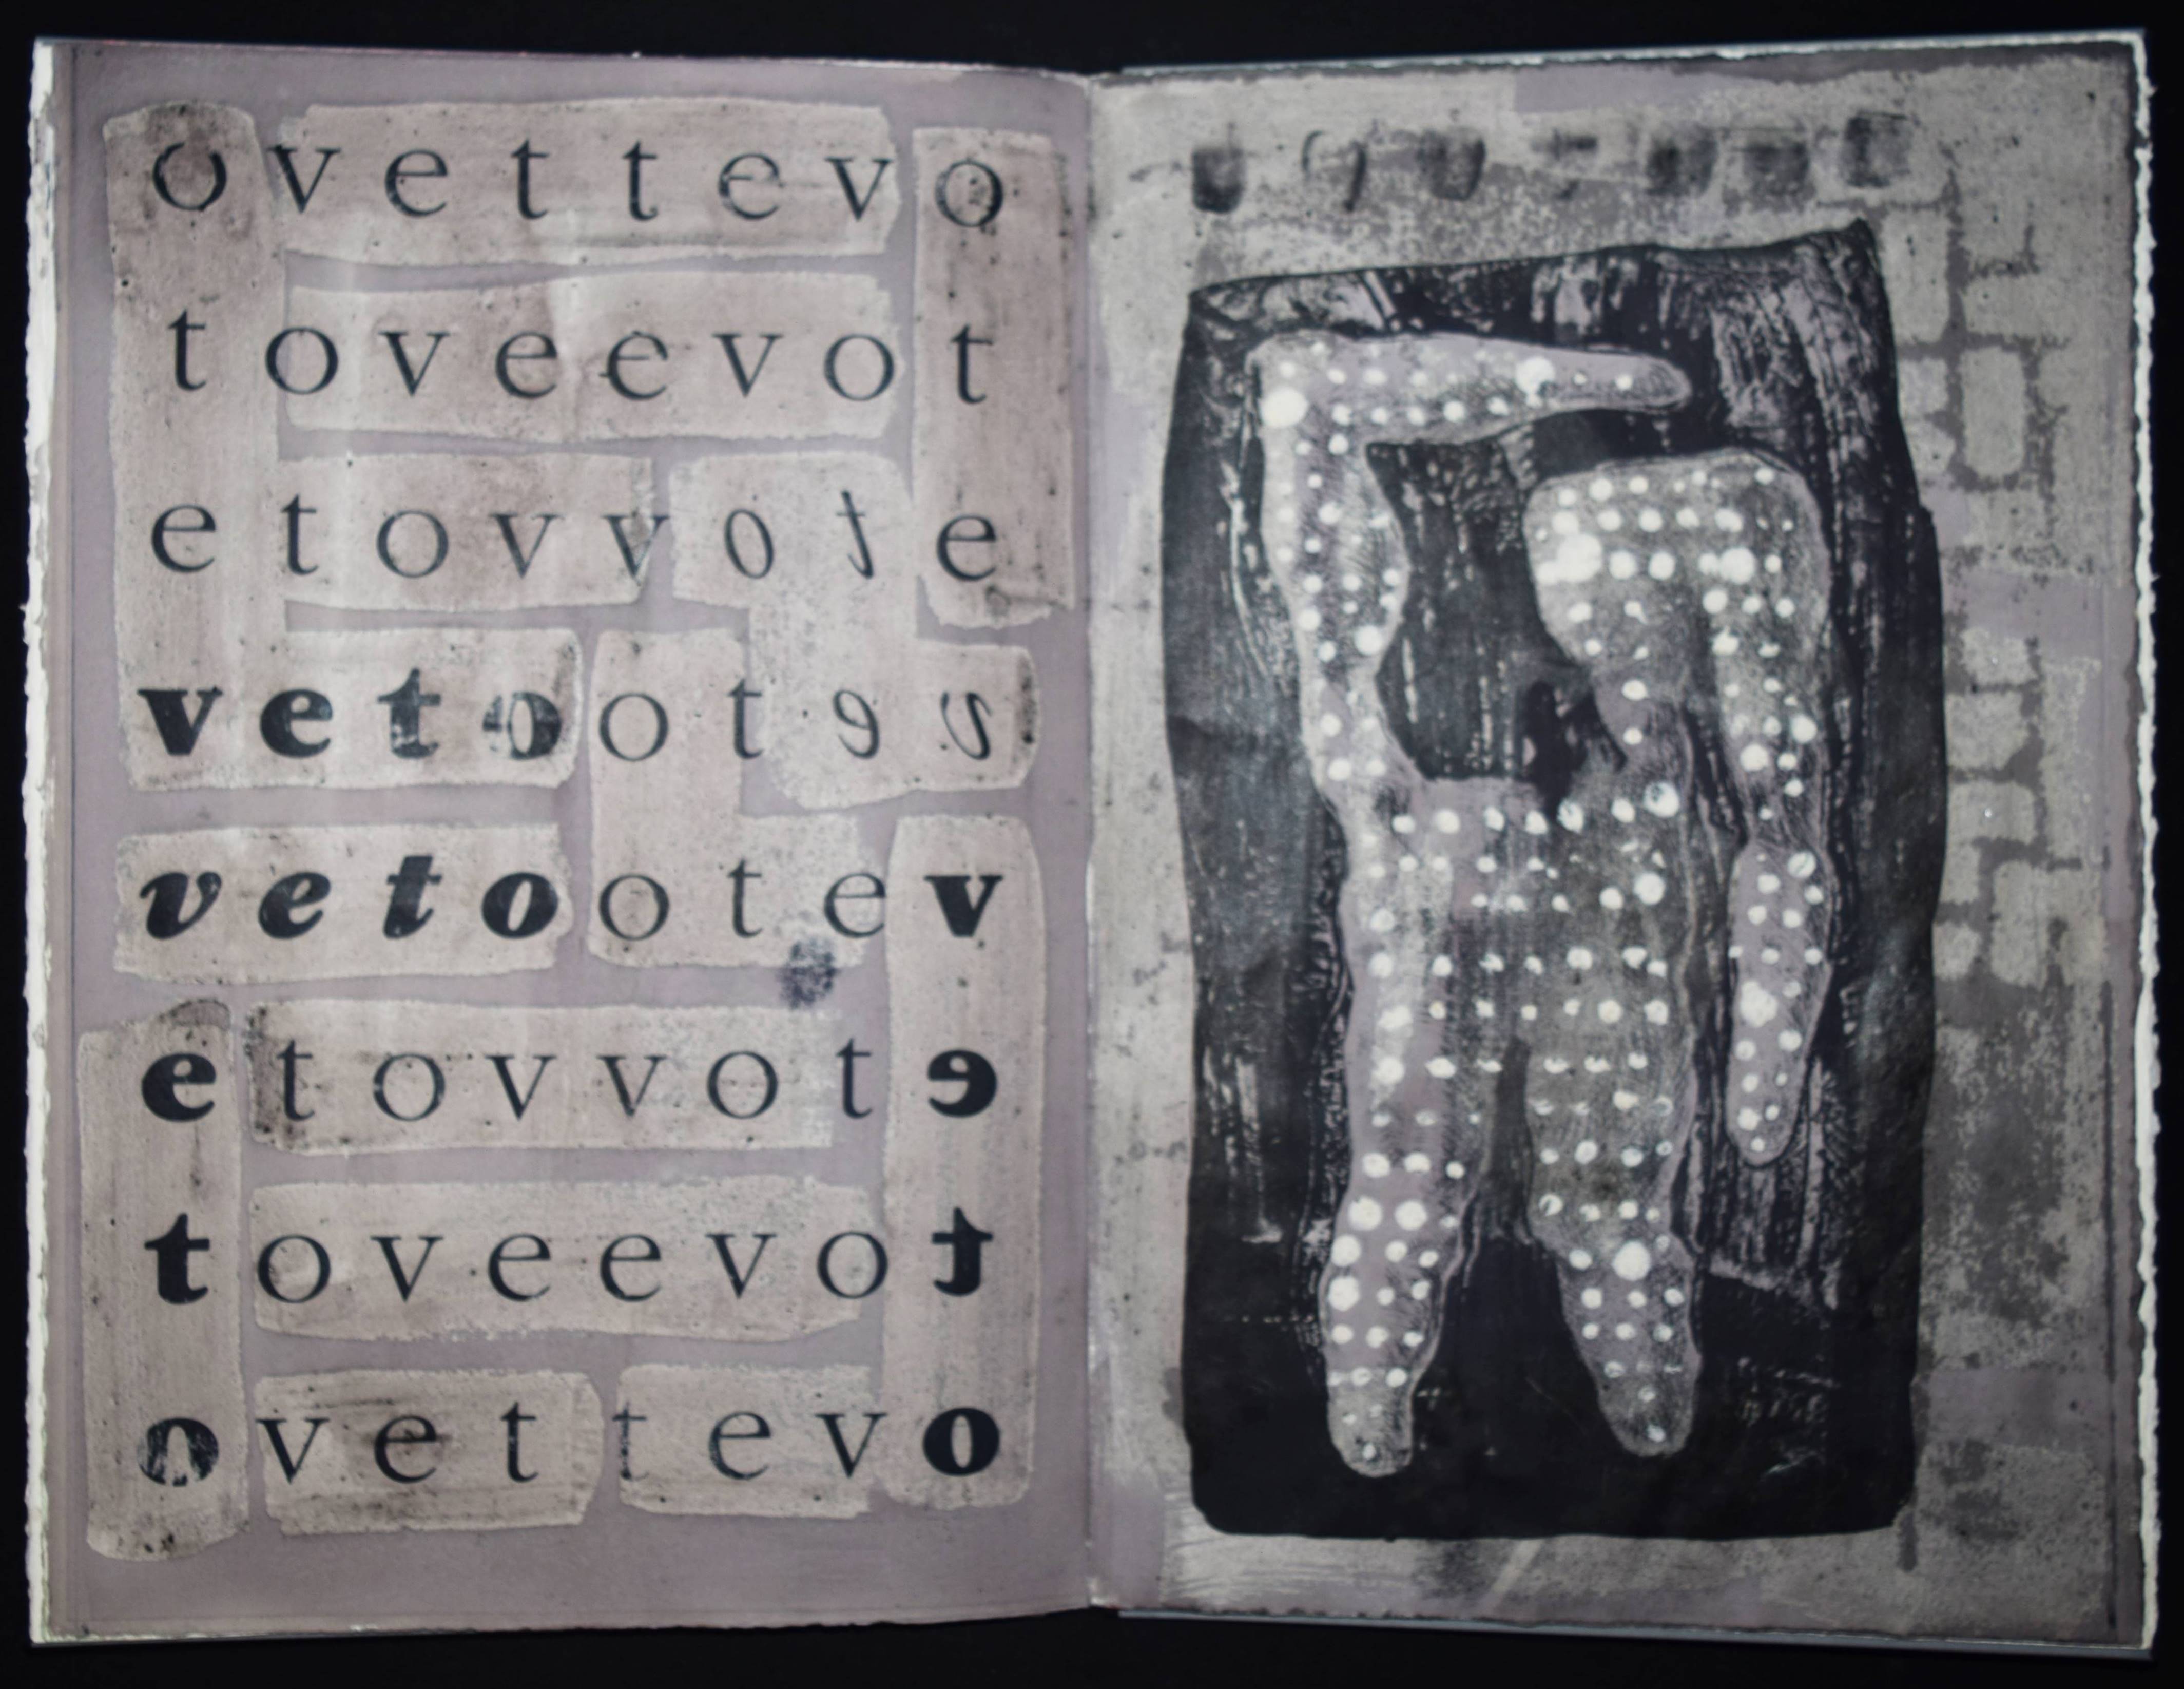 ovettevo
toveevot
etovvote
vetootev
vetootev
etovvote
toveevot
ovettevo